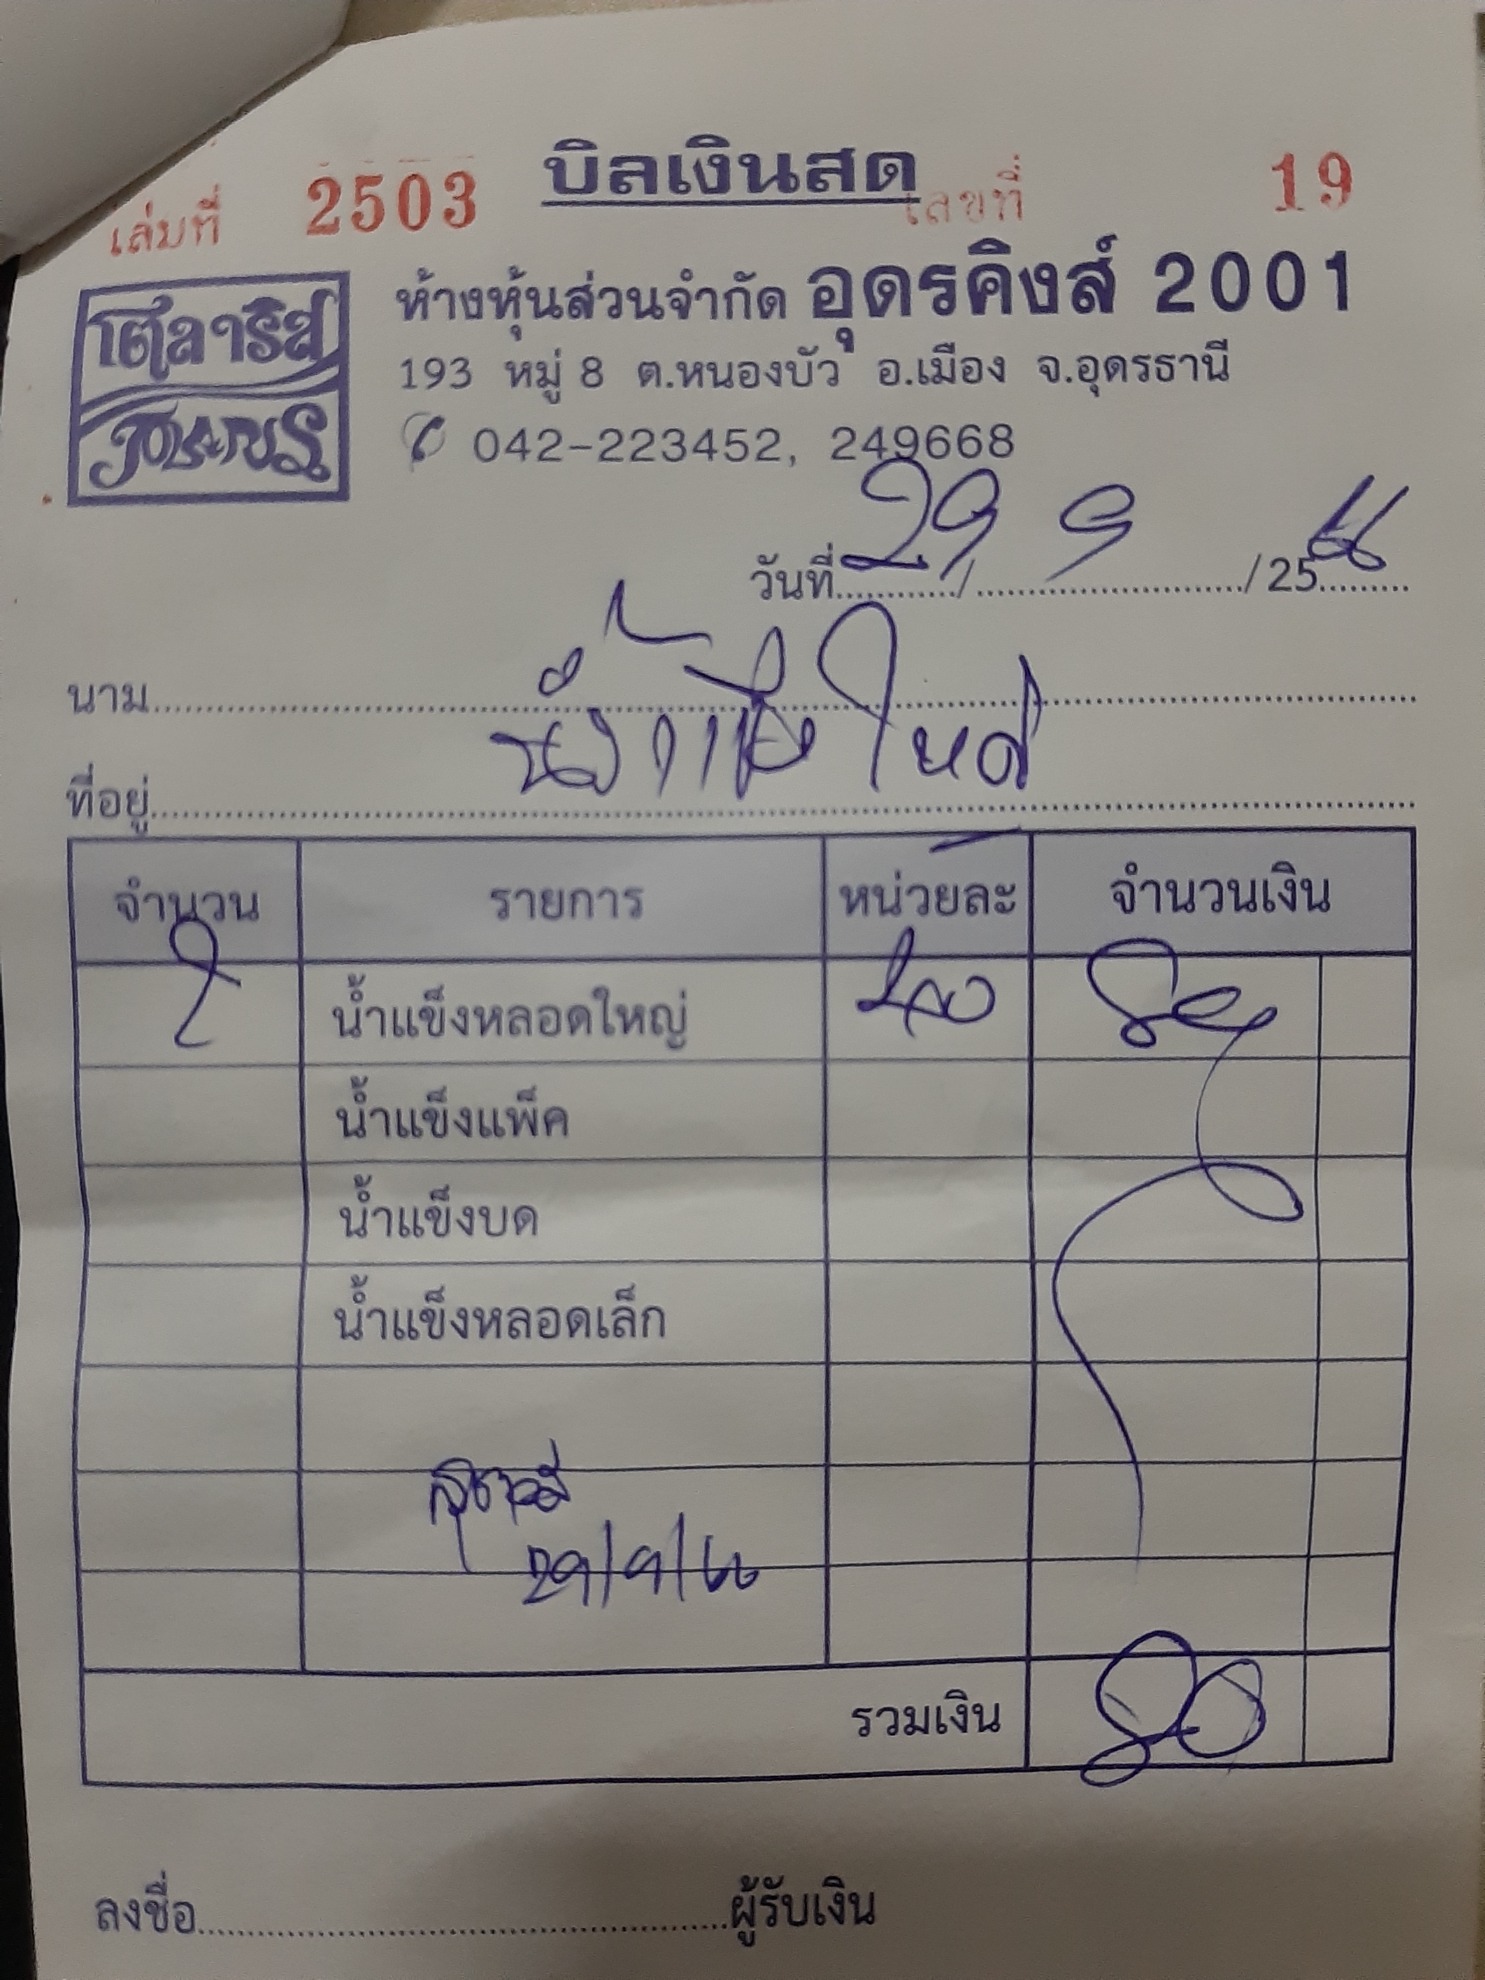 บิลเงินสด
เล่มที่ 2503 เลขที่ 19
โพลาริส
ห้างหุ้นส่วนจำกัด อุดรคิงส์ 2001
193 หมู่ 8 ต.หนองบัว อ.เมือง จ.อุดรธานี
042-223452, 249668
วันที่ 29 / 9 / 25 66
นาม
ที่อยู่
จำนวน รายการ หน่วยละ จำนวนเงิน
2 น้ำแข็งหลอดใหญ่ 40 80
น้ำแข็งแพ็ค
น้ำแข็งบด
น้ำแข็งหลอดเล็ก
29/9/66
รวมเงิน 80
ลงชื่อ ผู้รับเงิน